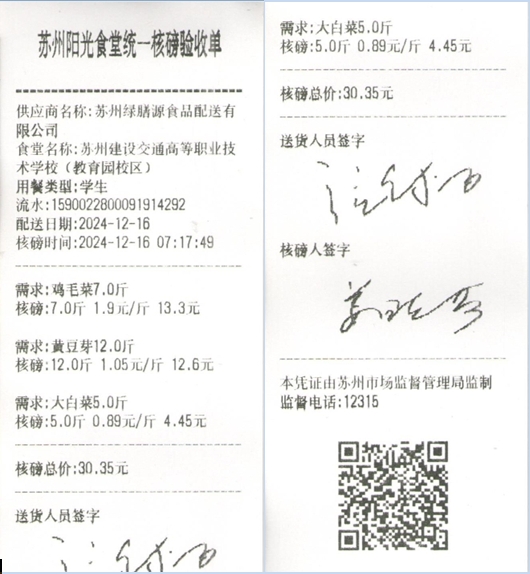 苏州阳光食堂统一核磅验收单
供应商名称:苏州绿膳源食品配送有
限公司
食堂名称:苏州建设交通高等职业技
术学校（教育园校区）
用餐类型:学生
流水:1590022800091914292
配送日期:2024-12-16
核磅时间:2024-12-16 07:17:49
需求:鸡毛菜7.0斤
核磅:7.0斤 1.9元/斤 13.3元
需求:黄豆芽12.0斤
核磅:12.0斤 1.05元/斤 12.6元
需求:大白菜5.0斤
核磅:5.0斤 0.89元/斤 4.45元
核磅总价:30.35元
送货人员签字
需求:大白菜5.0斤
核磅:5.0斤 0.89元/斤 4.45元
核磅总价:30.35元
送货人员签字
核磅人签字
本凭证由苏州市场监督管理局监制
监督电话:12315